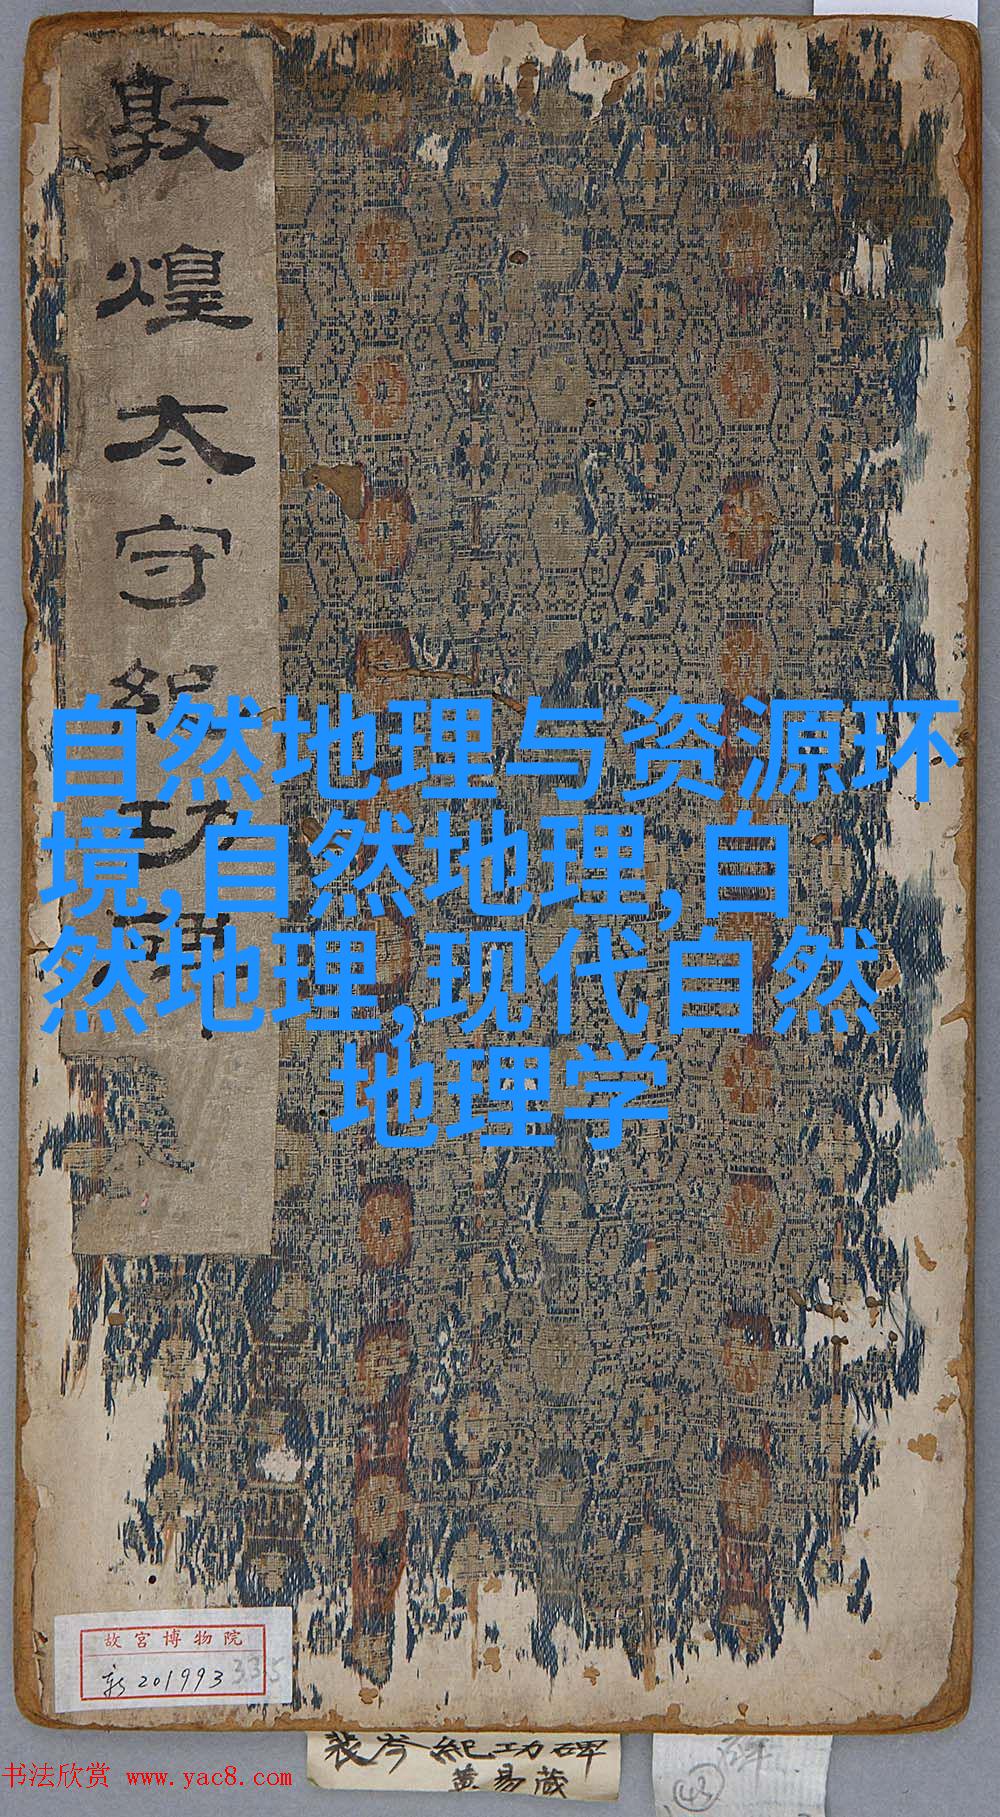 敦煌太守紀功碑
自然地理与资源环
境,自然地理,自
然地理,现代自然
地理学
故宫博物院
新201993
335
裴岑紀功碑
黄易藏
43
书法欣赏 www.yac8.com